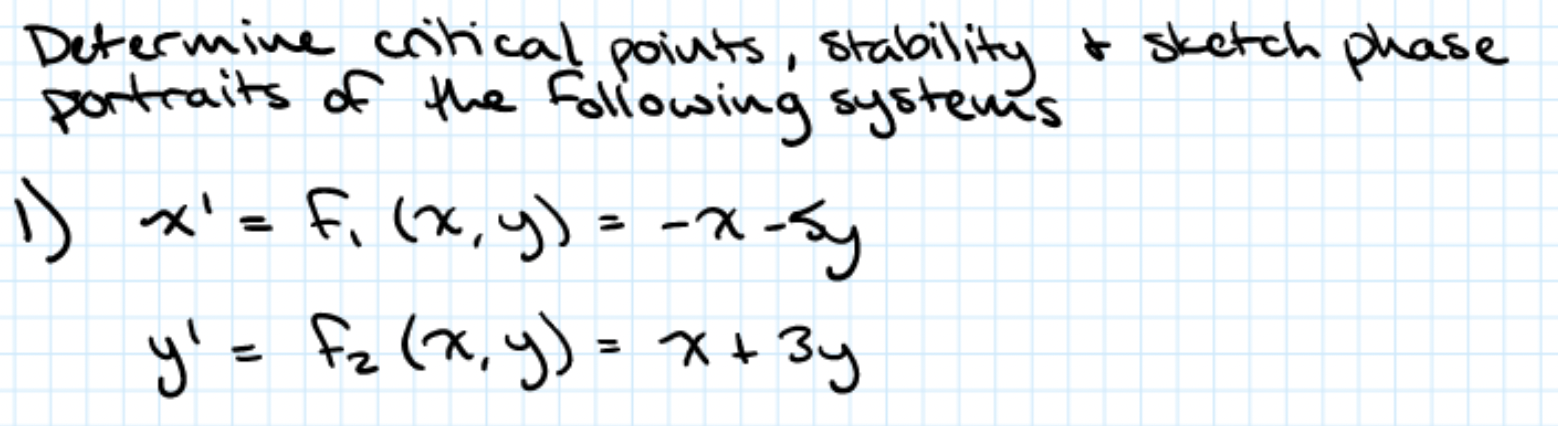 Determine critical points, stability & sketch phase
portraits of the following systems
1) x' = f₁ (x, y) = -x - 5y
y' = f₂ (x, y) = x + 3y